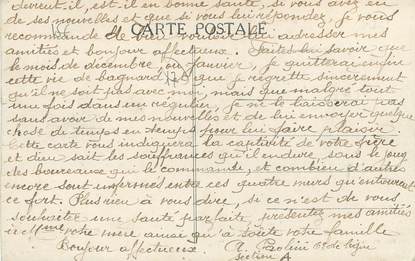 devient-il, est-il en bonne santé, si vous avez eu
de ses nouvelles et que si vous lui répondez, je vous
recommande de vouloir lui adresser mes
CARTE POSTALE
amitiés et bonjour affectueux. Faites lui savoir que
le mois de décembre, ou Janvier, je quitterai enfin
cette vie de bagnard, et que je regrette sincèrement
qu'il ne soit pas avec moi, mais que malgré tout
une fois dans un régulier, je ne le laisserai pas
sans avoir de mes nouvelles et de lui envoyer quelque
chose de temps en temps pour lui faire plaisir.
Cette carte vous indiquera la captivité de votre frère
et dieu sait les souffrances qu'il endure sous le joug
des bourreaux qui le commande, et combien d'autres
encore sont enfermés entre ces quatre murs qu'entourent
ce fort. Plus rien à vous dire, si ce n'est de vous
souhaiter une santé parfaite, présentez mes amitiés
à votre mère ainsi qu'à toute votre famille
Bonjour affectueux. Paolini
Section A